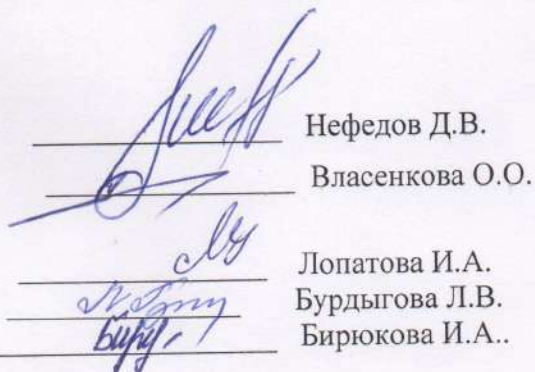 Нефедов Д.В.
Власенкова О.О.
Лопатова И.А.
Бурдыгова Л.В.
Бирюкова И.А..